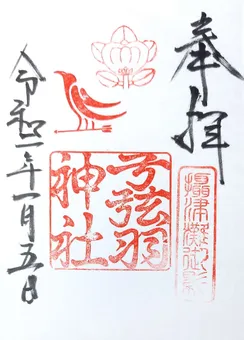 奉拝
摂津灘御影
弓弦羽神社
令和二年一月五日